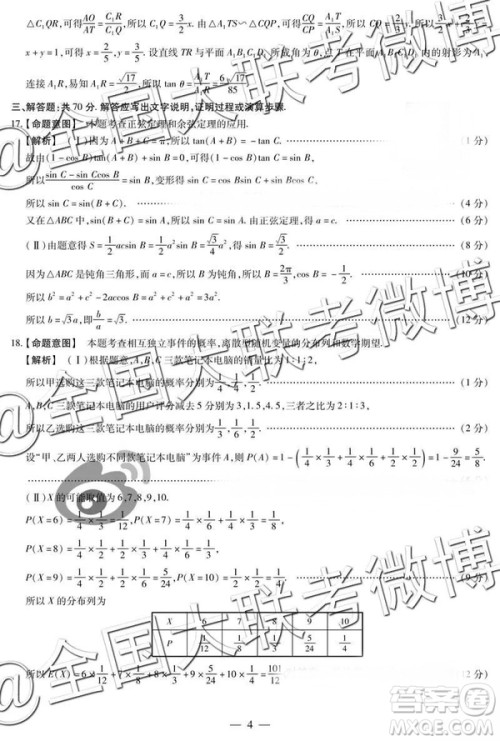 △C₁QR,可得AO/AT=C₁R/C₁Q,所以C₁Q=3/2x.由△A₁TS∽△CQP,可得CQ/CP=A₁T/A₁S
x+y=1,可得x=2/5,y=3/5.设直线TR与平面A₁B₁C₁D₁所成角为θ
连接A₁R,易知A₁R=√17/2,所以tan θ=
三、解答题:共70分.解答应写出文字说明,证明过程或演算步骤.
17.【命题意图】本题考查正弦定理和余弦定理的应用.
【解析】(Ⅰ)因为A+B+C=π,所以tan(A+B)=-tan C. (1分)
故由(1-cos B)tan(A+B)+sin B=0,得(1-cos B)tan C=sin B.
所以(sin C-sin Ccos B)/cos C=sin B,变形得sin C=sin Bcos C+cos Bsin C,
所以sin C=sin(B+C). (4分)
又在△ABC中,sin(B+C)=sin A,所以sin C=sin A.由正弦定理,得a=c. (6分)
(Ⅱ)由题意得S=1/2acsin B=1/2a²sin B=√3/4a²,得sin B=√3/2. (8分)
因为△ABC是钝角三角形,而a=c,所以B为钝角,所以B=2π/3,cos B=-1/2. (10分)
所以b²=a²+c²-2accos B=a²+a²+a²=3a².
所以b=√3a,即b/a=√3. (12分)
18.【命题意图】本题考查相互独立事件的概率,离散型随机变量的分布列和数学期望.
【解析】(Ⅰ)根据题意,A,B,C三款笔记本电脑的销量比为1:1:2,
所以甲选购这三款笔记本电脑的概率分别为1/4,1/4,1/2. (1分)
A,B,C三款笔记本电脑的用户评分减去5分别为3,1.5,4.5,三者之比为2:1:3,
所以乙选购这三款笔记本电脑的概率分别为1/3,1/6,1/2. (2分)
设“甲、乙两人选购不同款笔记本电脑”为事件A,则P(A)=1-(1/4×1/3+1/4×1/6+1/2×1/2)=1-9/24=5/8.
(Ⅱ)X的可能取值为6,7,8,9,10.
P(X=6)=1/4×1/3=1/12,P(X=7)=1/4×1/6+1/4×1/3=1/8,
P(X=8)=
P(X=9)= P(X=10)=1/2×1/2=1/4. (9分)
所以X的分布列为
X 6 7 8 9 10
P 1/12 1/8 1/3 5/24 1/4
所以E(X)=6×1/12+7×1/8+8×1/3+ (12分)
— 4 —
@全国大联考微博
@全国大联考微博
@全国大联考微博